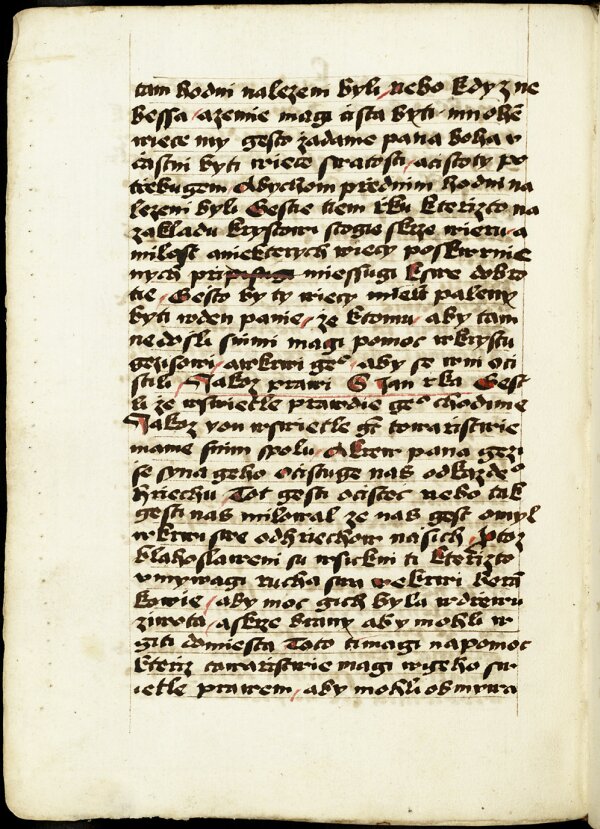 tam hodni nalezeni byli / nebo kdyz ne
bessa / a zemie magi cista byti mnohe
wiece my gesto zadame pana boha v
castni byti wiece swatosti / a cistoty po
trebugem Abychom prednim hodni na
lezeni byli Gestie tiem rku kterizto na
zakladu krystowi stogie skrze wieru / a
milost a niekterych wiecy poskwrnie
nych pri miessugi k swe dobro
tie / Gesto by ty wiecy mieli paleny
byti w den panie / ze k tomu aby tam
nedosli s nimi magi pomoc w krystu
gezisowi / a w krwi geho / aby se w ni oci
stili / Jakoz prawi S Jan rka Gest
li ze w swietle prawdie geho chodime
Jakoz y on w swietle gest towaristwie
mame s nim spolu / A krew pana gezi
se syna geho ocistuge nas od kazdeho
hriechu / Tot gesti ocistec nebo tak
gesti nas milowal ze nas gest omyl
w krwi swe od hriechow nasich / Protoz
blahoslaweni su wsickni ti kterizto
vmywagi rucha swa we krwi beran
kowie / aby moc gich byla w drewu
ziwota / a skrze brany aby mohli w
giti do miesta Toto ti magi na pomoc
kteriz towaristwie magi w geho sw
ietle prawem / aby mohli obmywa